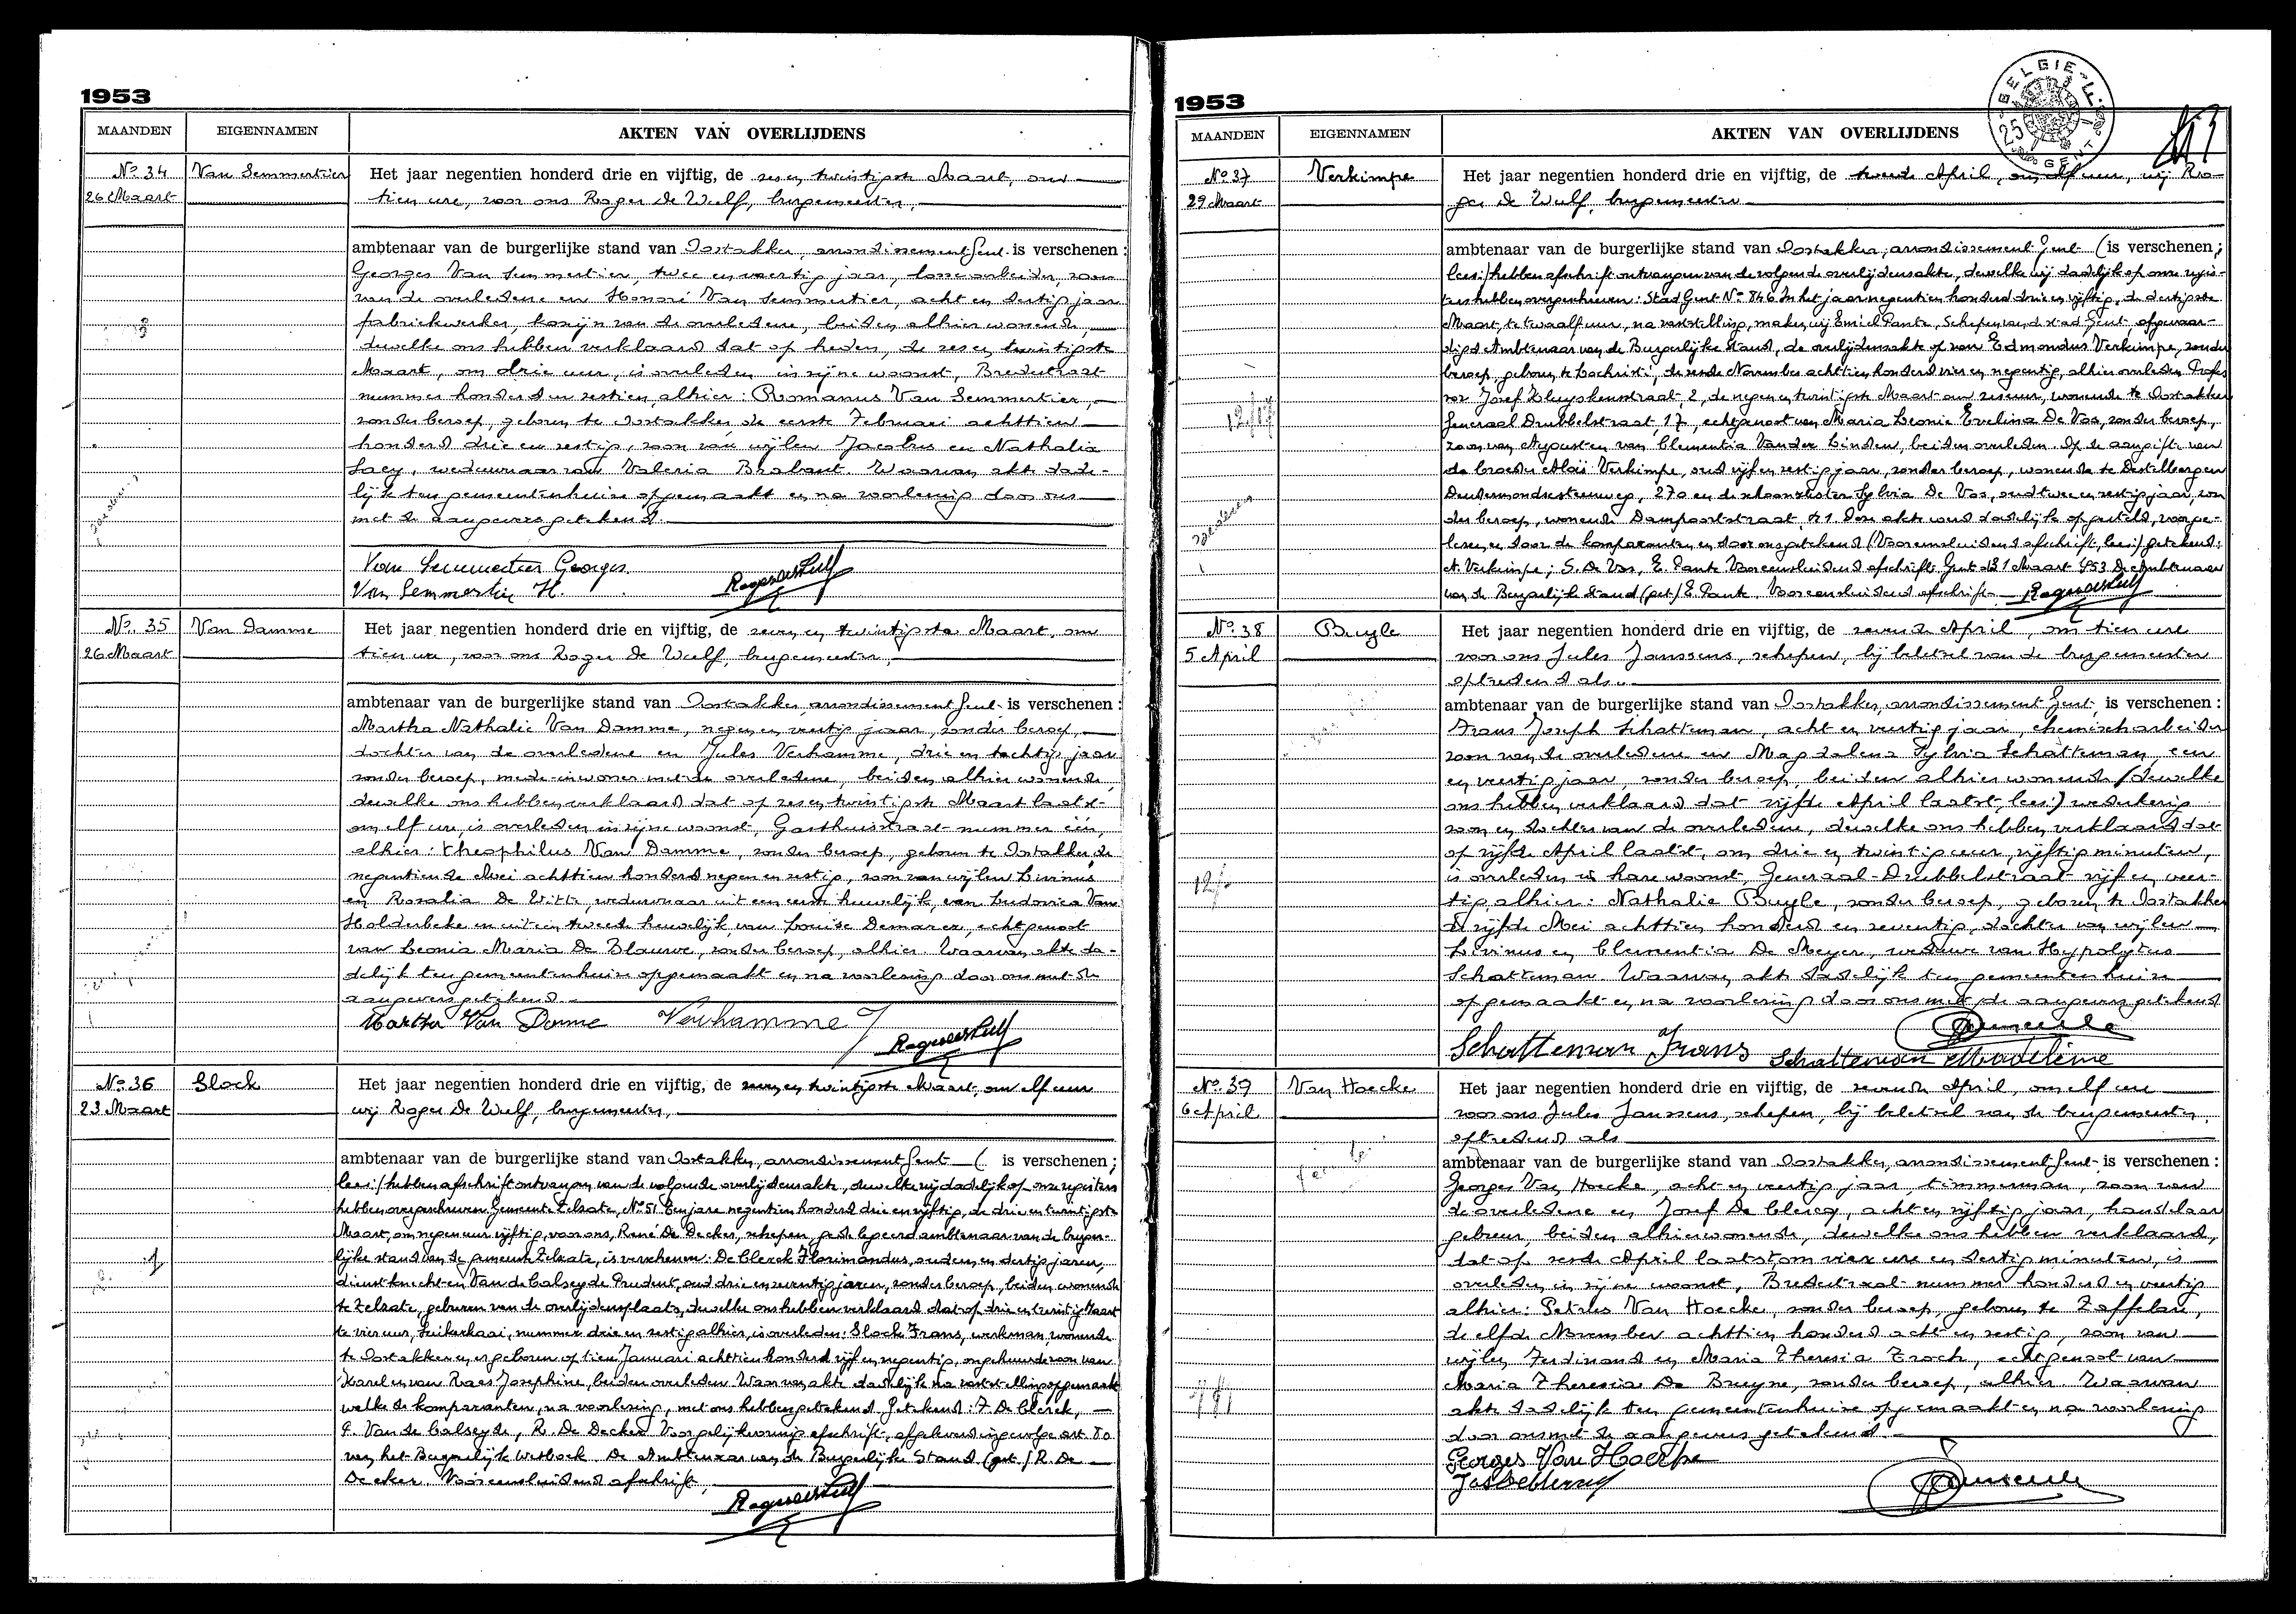 1953
MAANDEN EIGENNAMEN AKTEN VAN OVERLIJDENS
No 34 Van Semmertier Het jaar negentien honderd drie en vijftig, de zes en twintigste Maart, om
26 Maart tien ure, voor ons Roger De Wulf, burgemeester,
ambtenaar van de burgerlijke stand van Oostakker, arrondissement Gent is verschenen :
Georges Van Semmertier, twee en veertig jaar, losse arbeider, zoon
van de overledene en Honoré Van Semmertier, acht en dertig jaar
fabriekwerker, kozijn van de overledene, beiden alhier wonende,
dewelke ons hebben verklaard dat op heden, de zes en twintigste
Maart, om drie uur, is overleden in zijne woonst, Bredestraat
nummer honderd en zestien, alhier : Romanus Van Semmertier,
zonder beroep, geboren te Oostakker de eerste Februari achttien
honderd drie en zestig, zoon van wijlen Jacobus en Nathalia
Lacy, weduwnaar van Valeria Brabant. Waarvan akte dade-
lijk ten gemeentenhuize opgemaakt en na voorlezing door ons
met de aangevers getekend.
Van Semmertier Georges
Van Semmertier H. Roger De Wulf
No. 35 Van Damme Het jaar negentien honderd drie en vijftig, de zeven en twintigste Maart, om
26 Maart tien ure, voor ons Roger De Wulf, burgemeester,
ambtenaar van de burgerlijke stand van Oostakker, arrondissement Gent is verschenen :
Martha Nathalie Van Damme, negen en veertig jaar, zonder beroep,
dochter van de overledene en Jules Verhamme, drie en tachtig jaar
zonder beroep, mede-inwoner met de overledene, beiden alhier wonende,
dewelke ons hebben verklaard dat op zes en twintigste Maart laatst
om elf ure, is overleden in zijne woonst, Gasthuisstraat nummer één,
alhier : Theophilus Van Damme, zonder beroep, geboren te Oostakker de
negentiende Mei achttien honderd negen en zestig, zoon van wijlen Livinus
en Rosalia De Witte, weduwnaar uit een eerste huwelijk, van Ludovica Van
Holderbeke en uit een tweede huwelijk van Louise Demarez, echtgenoot
van Leonia Maria De Blauwe, zonder beroep, alhier. Waarvan akte da-
delijk ten gemeentenhuize opgemaakt en na voorlezing door ons met de
aangevers getekend.
Martha Van Damme Verhamme J
Roger De Wulf
No. 36 Slock Het jaar negentien honderd drie en vijftig, de zeven en twintigste Maart, om elf uur
23 Maart wij Roger De Wulf, burgemeester,
ambtenaar van de burgerlijke stand van Oostakker, arrondissement Gent ( is verschenen ;
lees:) hebben afschrift ontvangen van de volgende overlijdensakte, dewelke wij dadelijk op onze registers
hebben overgeschreven Gemeente Zelzate, No 51 Een jare negentien honderd drie en vijftig, de drie en twintigste
Maart, om negen uur vijftig, voor ons, René De Decker, schepen, gedelegeerd ambtenaar van de burger-
lijke stand van de gemeente Zelzate, is verschenen : De Clerck Florimondus, oud en dertig jaren,
dienstknecht en Van de Calseyde Prudent, oud drie en zeventig jaren, zonder beroep, beiden wonende
te Zelzate, geburen van de overlijdensplaats, dewelke ons hebben verklaard dat op drie en twintig Maart
te vier uur, Suikerkaai, nummer drie en zestig alhier, is overleden : Slock Frans, werkman, wonende
te Oostakker en er geboren op tien Januari achttien honderd vijf en negentig, ongehuwde zoon van
Karel en van Raes Josephine, beiden overleden Waarvan akte dadelijk na vaststelling opgemaakt
welke de komparanten, na voorlezing, met ons hebben getekend. Getekend : F. De Clerck,
P. Van de Calseyde, R. De Decker Voor gelijkvormig afschrift, afgeleverd ingevolge art. 80
van het Burgerlijk Wetboek. De Ambtenaar van de Burgerlijke Stand (get.) R. De
Decker. Voor eensluidend afschrift,
Roger De Wulf
1953
BELGIE 25 GENT
MAANDEN EIGENNAMEN AKTEN VAN OVERLIJDENS
No 37 Verkimpe Het jaar negentien honderd drie en vijftig, de tweede April, om elf uur, wij Ro-
29 Maart ger De Wulf, burgemeester
ambtenaar van de burgerlijke stand van Oostakker, arrondissement Gent (is verschenen ;
lees:) hebben afschrift ontvangen van de volgende overlijdensakte, dewelke wij dadelijk op onze regis-
ters hebben overgeschreven : Stad Gent No 846 In het jaar negentien honderd drie en vijftig, de dertigste
Maart, te twaalf uur, na vaststelling, maken wij Emiel Pante, Schepen van de stad Gent, afgevaar-
digd Ambtenaar van de Burgerlijke Stand, de overlijdensakte op van Edmondus Verkimpe, zonder
beroep, geboren te Lochristi, de zesde November achttien honderd vier en negentig, alhier overleden Profes
sor Jozef Kluyskensstraat, 2, de negen en twintigste Maart om zes uur, wonende te Oostakker
Generaal Drubbelstraat, 17, echtgenoot van Maria Leonie Evelina De Vos, zonder beroep,
zoon van August en van Clementia Vander Linden, beiden overleden. Op de aangifte van
de broeder Aloïs Verkimpe, oud vijf en zestig jaar, zonder beroep, wonende te Destelbergen
Dendermondsesteenweg, 270 en de schoonzuster Sylvia De Vos, oud twee en zestig jaar, zon
der beroep, wonende Dampoortstraat, 41. Deze akte werd dadelijk opgesteld, voorge-
lezen en door de komparanten en door ons getekend (Voor eensluidend afschrift, lees:) getekend:
A. Verkimpe ; S. De Vos, E. Pante Voor eensluidend afschrift, Gent 31 Maart 1953 De Ambtenaar
van de Burgerlijke Stand (get.) E. Pante. Voor eensluidend afschrift Roger De Wulf
No. 38 Buyle Het jaar negentien honderd drie en vijftig, de zevende April, om tien ure
5 April voor ons Jules Janssens, schepen, bij beletsel van de burgemeester
optredend als
ambtenaar van de burgerlijke stand van Oostakker, arrondissement Gent, is verschenen :
Frans Joseph Schatteman, acht en veertig jaar, chemisch arbeider
zoon van de overledene en Magdalena Sylvia Schatteman, een
en veertig jaar, zonder beroep, beiden alhier wonende (dewelke
ons hebben verklaard dat vijfde April laatst, lees:) wederkerig
zoon en dochter van de overledene, dewelke ons hebben verklaard dat
op vijfde April laatst, om drie en twintig uur, vijftig minuten,
is overleden in hare woonst, Generaal-Drubbelstraat vijf en veer-
tig, alhier : Nathalie Buyle, zonder beroep, geboren te Oostakker
de vijfde Mei achttien honderd en zeventig, dochter van wijlen
Livinus en Clementia De Meyer, weduwe van Hypolytus
Schatteman. Waarvan akte dadelijk ten gemeentenhuize
opgemaakt en na voorlezing door ons met de aangevers getekend
Schatteman Frans Schatteman Madeleine
No. 39 Van Hoecke Het jaar negentien honderd drie en vijftig, de zevende April, om elf ure
6 April voor ons Jules Janssens, schepen, bij beletsel van de burgemeester,
optredend als
ambtenaar van de burgerlijke stand van Oostakker, arrondissement Gent is verschenen :
Georges Van Hoecke, acht en veertig jaar, timmerman, zoon van
de overledene en Jozef De Clercq, acht en vijftig jaar, handelaar
gebuur, beiden alhier wonende, dewelke ons hebben verklaard,
dat op zesde April laatst, om vier ure en dertig minuten, is
overleden in zijne woonst, Bredestraat nummer honderd en veertig
alhier : Petrus Van Hoecke, zonder beroep, geboren te Zaffelare,
de elfde November achttien honderd acht en zestig, zoon van
wijlen Ferdinand en Maria Theresia Troch, echtgenoot van
Maria Theresia De Bruyne, zonder beroep, alhier. Waarvan
akte dadelijk ten gemeentenhuize opgemaakt en na voorlezing
door ons met de aangevers getekend.
Georges Van Hoecke
Jos De Clercq